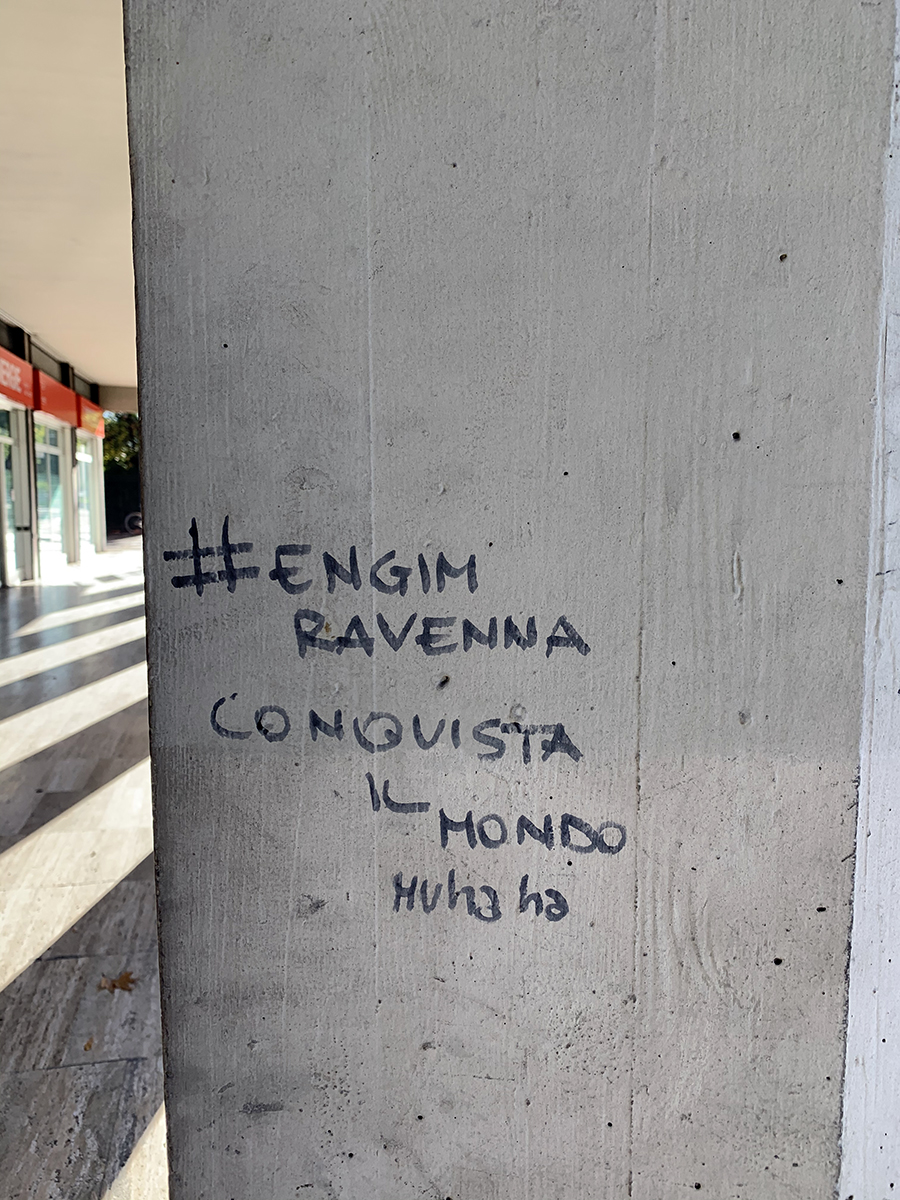 #ENGIM
RAVENNA
CONQUISTA
IL
MONDO
MUhaha